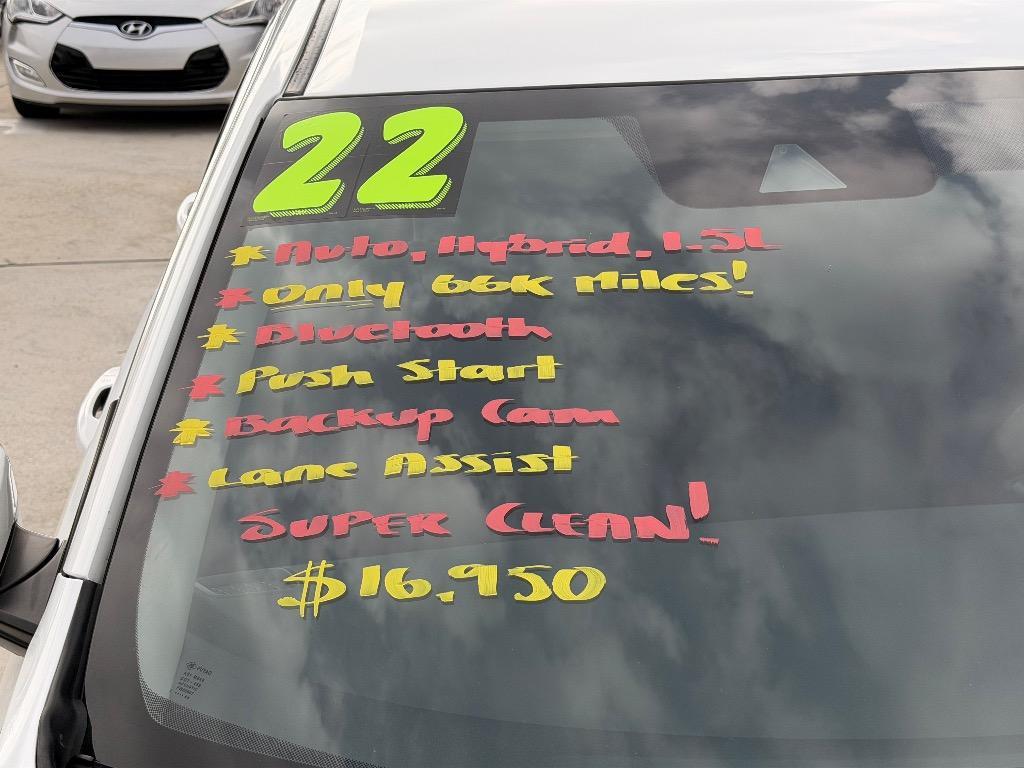 22
* Auto, Hybrid, 1.5L
* Only 66K Miles!
* Bluetooth
* Push Start
* Backup Cam
* Lane Assist
SUPER CLEAN!
$16,950